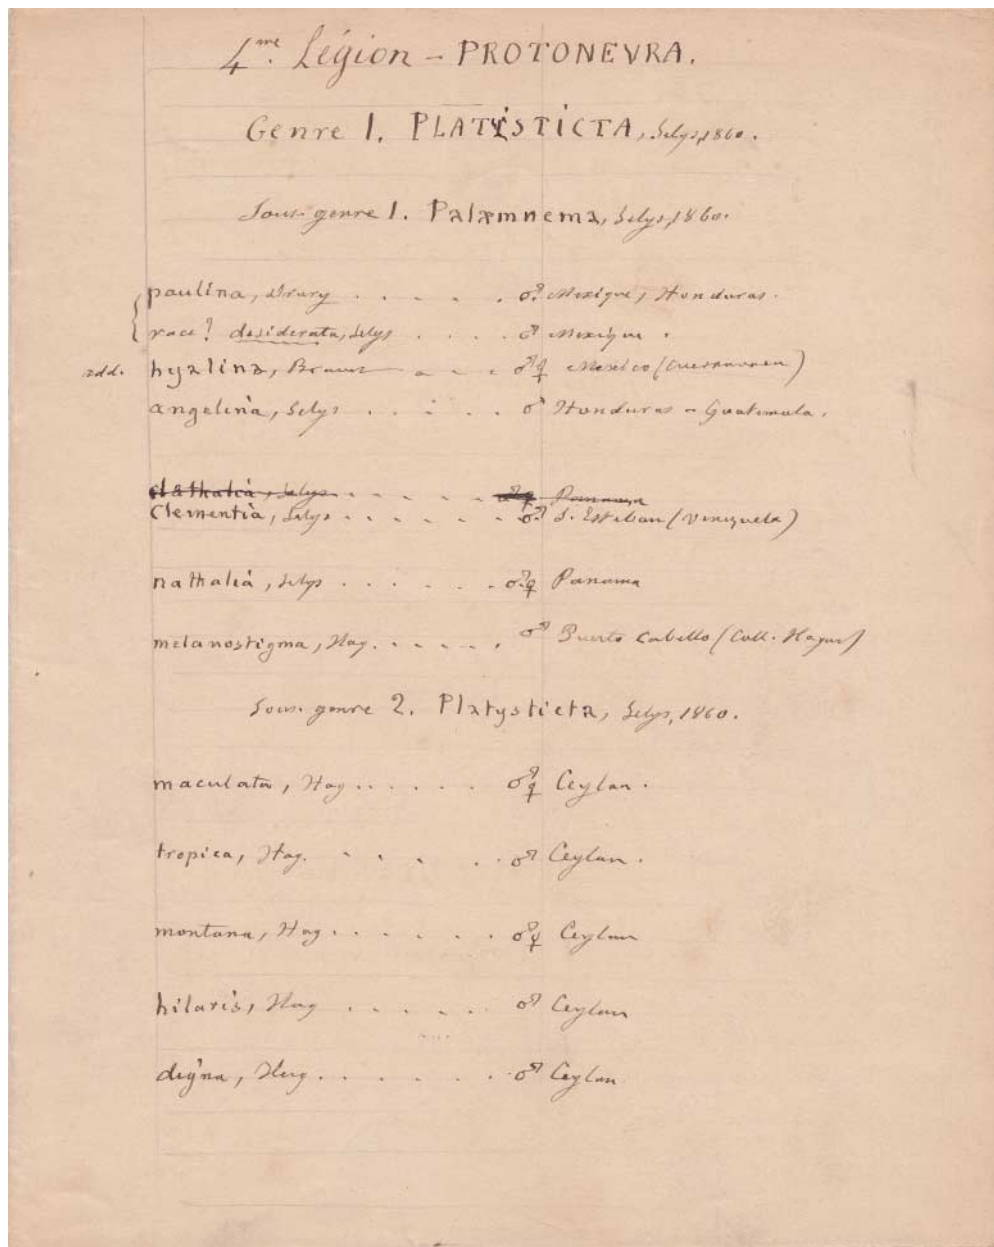 4me. Légion - PROTONEVRA.
Genre 1. PLATYSTICTA, Selys, 1860.
Sous-genre 1. Palæmnema, Selys, 1860.
paulina, Drury . . . . . ♂. Mexique, Honduras.
race? desiderata, Selys . . . . ♂ Mexique.
add. hyalina, - - - ♂♀ Mexico (Cuernavaca)
angelina, Selys . . . . . ♂ Honduras - Guatemala.
nathalia, Selys . . . . . ♂♀ Panama
Clementia, Selys . . . . . . ♂. S. Esteban (Venezuela)
nathalia, Selys . . . . . ♂.♀ Panama
melanostigma, Hag. . . . . . ♂ Puerto Cabello (Coll. Hagen)
Sous-genre 2. Platysticta, Selys, 1860.
maculata, Hag . . . . . . ♂♀ Ceylan.
tropica, Hag. . . . . . ♂ Ceylan.
montana, Hag . . . . . . ♂♀ Ceylan
hilaris, Hag . . . . . . ♂ Ceylan
digna, Hag . . . . . . ♂ Ceylan